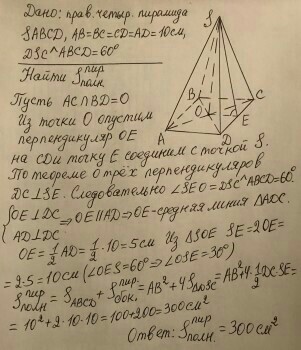 Дано: прав. четыр. пирамида
SABCD, AB=BC=CD=AD=10см,
DSC^ABCD=60°
Найти Sпир полн.
S
B
C
O
A
D
E
Пусть AC∩BD=O
Из точки O опустим
перпендикуляр OE
на CD и точку E соединим с точкой S.
По теореме о трёх перпендикуляров
DC⊥SE. Следовательно ∠SEO=DSC^ABCD=60°
{OE⊥DC
AD⊥DC ⇒ OE∥AD ⇒ OE-средняя линия △ADC.
OE=1/2 AD=1/2·10=5см Из △SOE SE=2OE=
=2·5=10см (∠OES=60° ⇒ ∠OSE=30°)
Sпир полн.=SABCD+Sбок.=AB²+4S△DSC=AB²+4·1/2 DC·SE=
=10²+2·10·10=100+200=300см²
Ответ: Sпир полн.=300см²